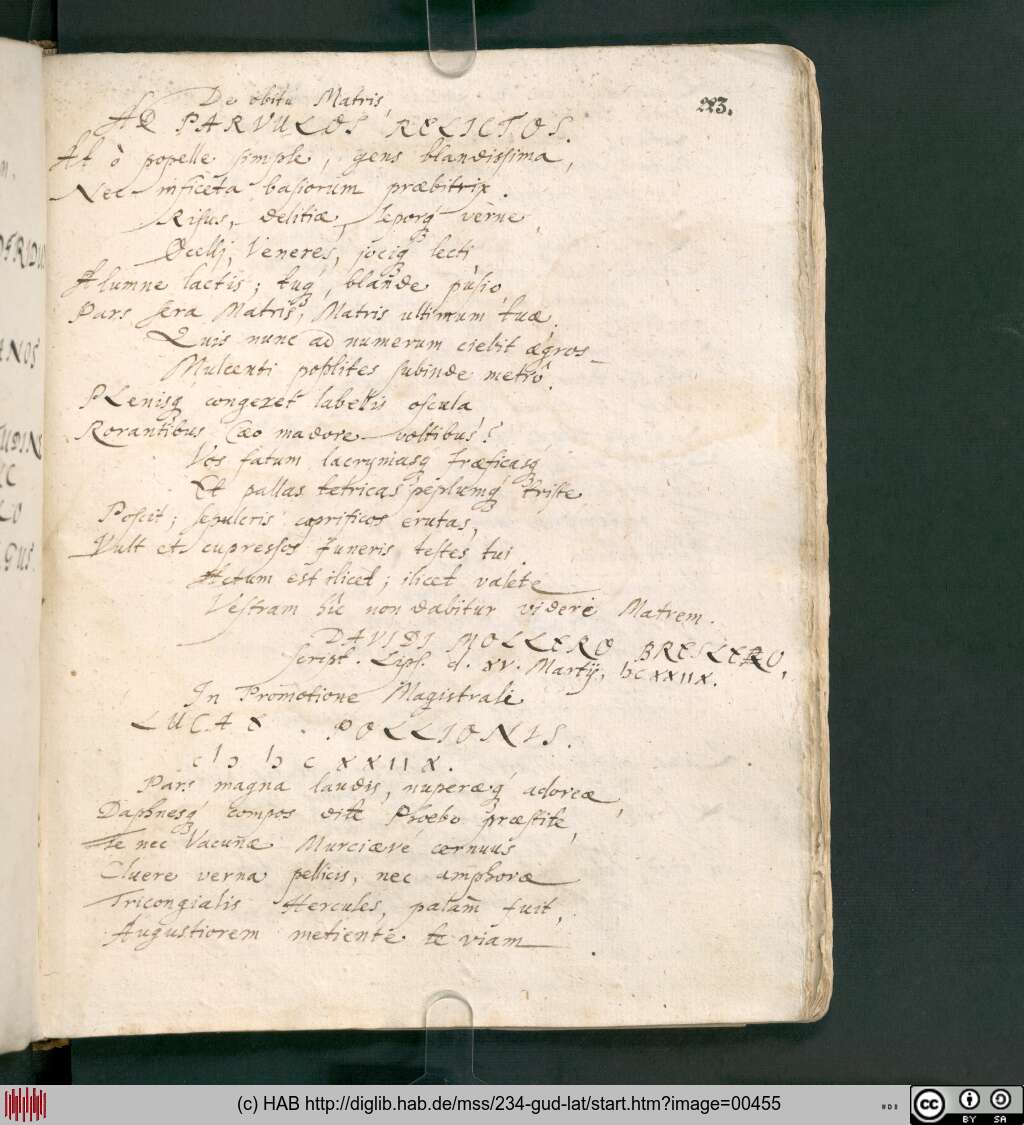 223.
De obitu Matris
AD PARVULOS RELICTOS.
At ò popelle simple, gens blandissima,
Nec inficeta basiorum præbitrix.
Risus, delitiæ, leporq́ verne,
Ocellj, Veneres, jociq́ lecti,
Alumne lactis; tuq́, blande pusio,
Pars sera Matris, Matris ultimum tuæ,
Quis nunc ad numerum ciebit ægros
Mulcenti poplites subinde metrô.
PLenisq́ congeret labellis oscula,
Rorantibus madore voltibus?
Vos fatum lacrymasq́ præficasq́
Et pallas tetricas peplumq́ triste
Poscit; sepulcris caprificos erutas,
Vult et cupressos funeris testes tui.
Actum est ilicet; ilicet valete
Vestram hîc non dabitur videre Matrem.
DAVIDI MOLLERO BRESLERO,
script. Lips. d. XV. Martij, IↃC XXIIX.
In Promotione Magistrali
LUCAE POLLIONIS.
CIↃ IↃC XXIIX.
Pars magna laudis, nuperæq́ adoreæ,
Daphnesq́ compos dite Phoebo præstite,
Te nec Vacunæ Murciæve cernuus
Cluere verna pellicis, nec amphoræ
Tricongialis Hercules, palam fuit,
Augustiorem metiente te viam.
(c) HAB http://diglib.hab.de/mss/234-gud-lat/start.htm?image=00455
cc BY SA